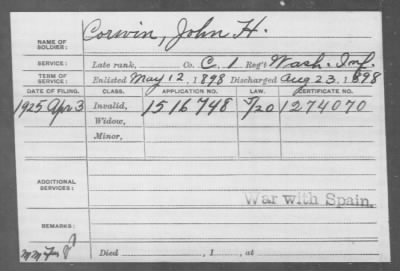 NAME OF SOLDIER: Corwin, John H.
SERVICE: Late rank, Co. C, 1 Reg't Wash. Inf.
TERM OF SERVICE: Enlisted May 12, 1898 Discharged Aug 23, 1898
DATE OF FILING. CLASS. APPLICATION NO. LAW. CERTIFICATE NO.
1925 Apr. 3 Invalid, 1516748 5/20 1274070
Widow,
Minor,
ADDITIONAL SERVICES:
War with Spain.
REMARKS:
Died , 1 , at